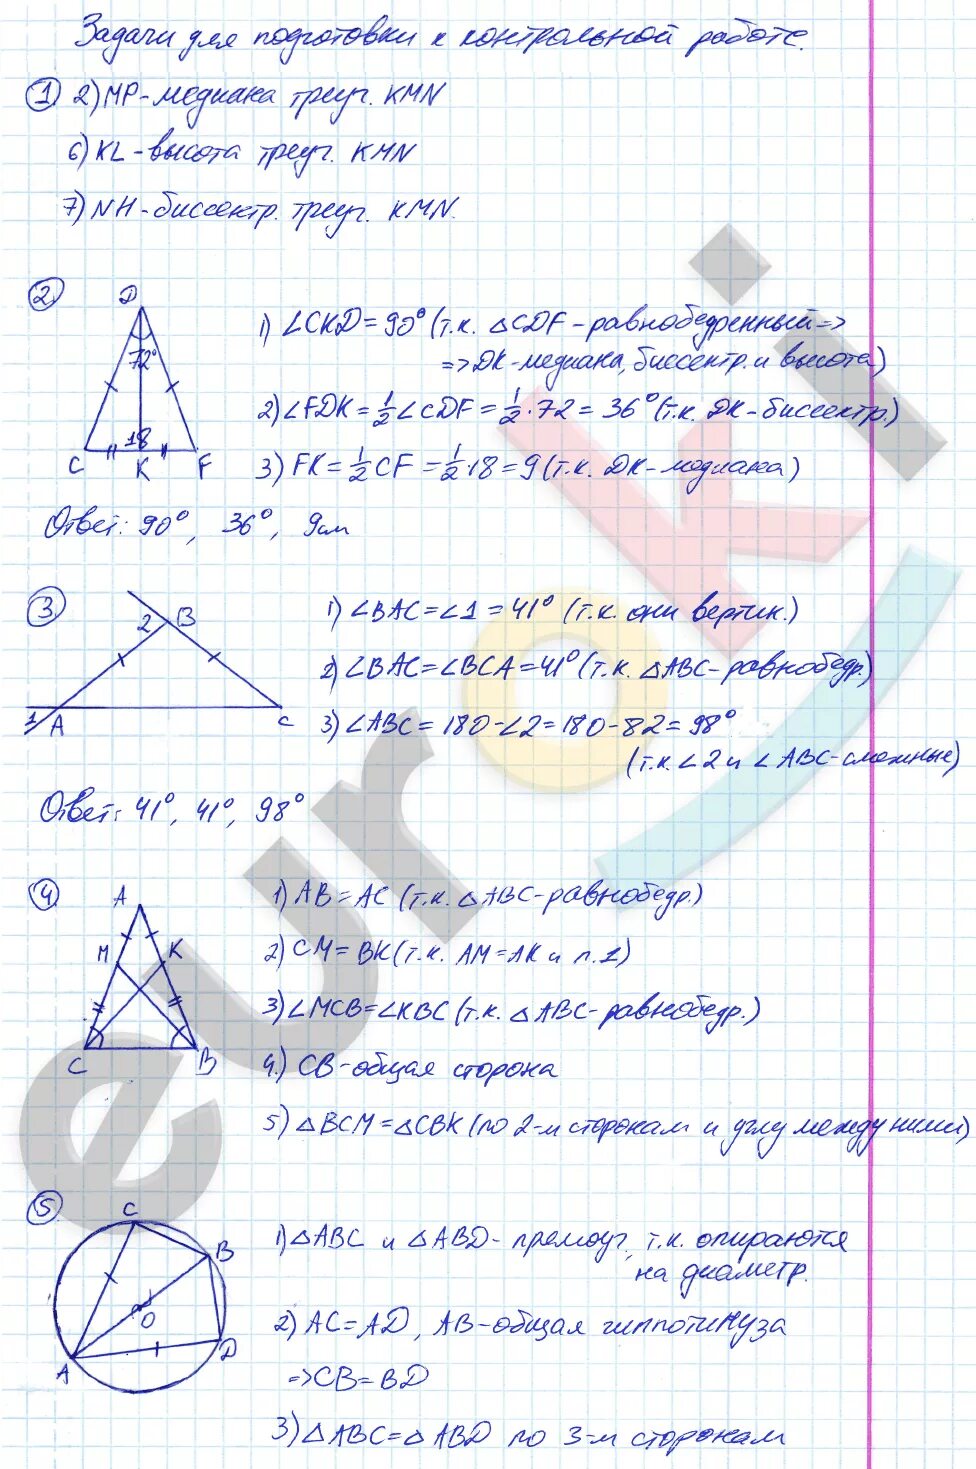 Задачи для подготовки к контрольной работе.
① 2) MP-медиана треуг. KMN
6) KL-высота треуг. KMN
7) NH-биссектр. треуг. KMN.
②
D
72°
18
C K F
1) ∠CKD = 90° (т.к. △CDF-равнобедренный =>
=> DK-медиана, биссектр. и высота)
2) ∠FDK = 1/2 ∠CDF = 1/2 · 72 = 36° (т.к. DK-биссектр.)
3) FK = 1/2 CF = 1/2 · 18 = 9 (т.к. DK-медиана)
Ответ: 90°, 36°, 9см
③
2 B
1 A C
1) ∠BAC = ∠1 = 41° (т.к. они вертик.)
2) ∠BAC = ∠BCA = 41° (т.к. △ABC-равнобедр.)
3) ∠ABC = 180-∠2 = 180-82 = 98°
(т.к. ∠2 и ∠ABC-смежные)
Ответ: 41°, 41°, 98°
④
A
M K
C B
1) AB = AC (т.к. △ABC-равнобедр.)
2) CM = BK (т.к. AM = AK и п.1)
3) ∠MCB = ∠KBC (т.к. △ABC-равнобедр.)
4.) CB-общая сторона
5) △BCM = △CBK (по 2-м сторонам и углу между ними)
⑤
C
B
O
D
A
1) △ABC и △ABD- прямоуг., т.к. опираются
на диаметр.
2) AC = AD, AB-общая гиппотинуза
=> CB = BD
3) △ABC = △ABD по 3-м сторонам
euroki